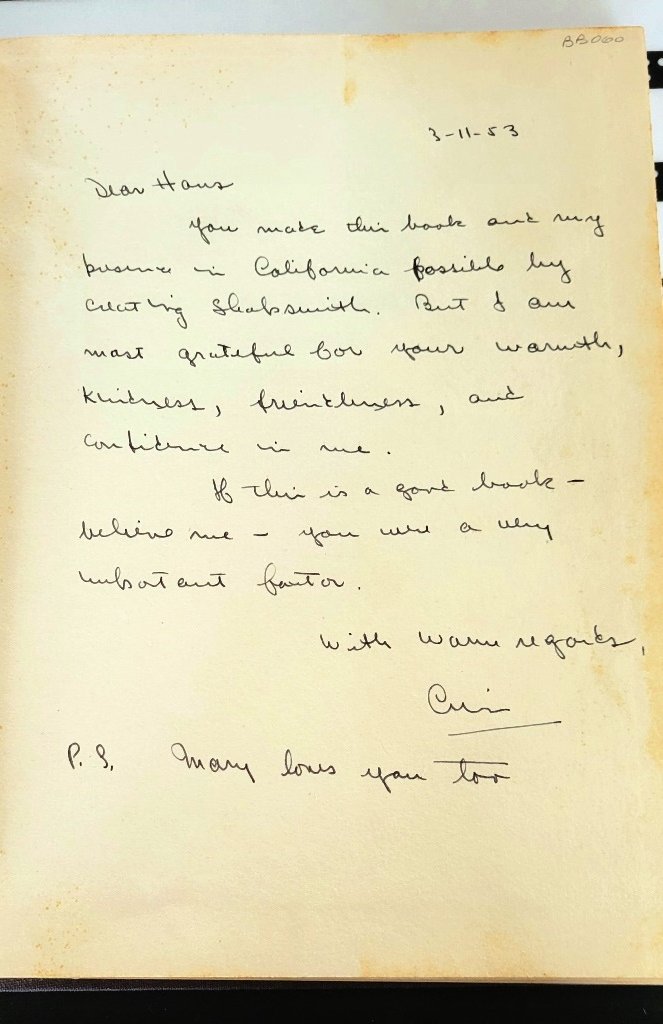 BB060
3-11-53
Dear Hans
You made this book and my
presence in California possible by
creating Shopsmith. But I am
most grateful for your warmth,
kindness, friendliness, and
confidence in me.
If this is a good book -
believe me - you were a very
important factor.
With warm regards,
P.S. Mary loves you too